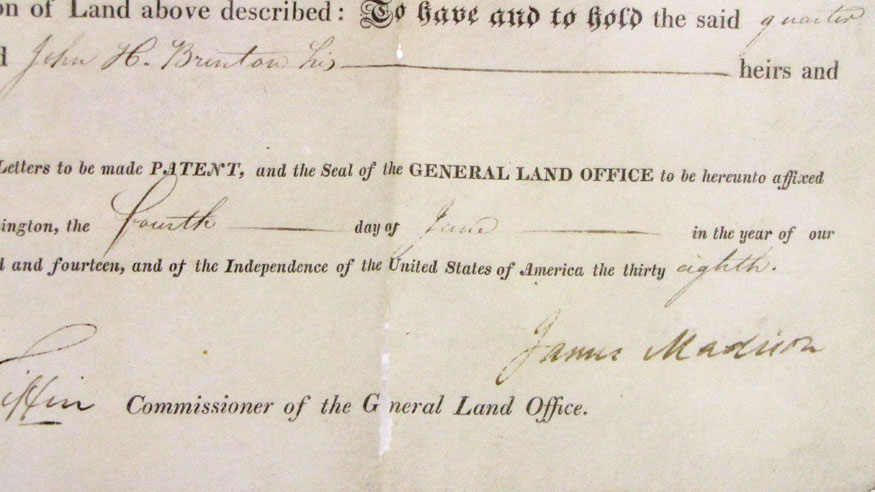 on of Land above described: To have and to hold the said quarter
d John H. Brinton his heirs and
Letters to be made PATENT, and the Seal of the GENERAL LAND OFFICE to be hereunto affixed
ington, the fourth day of June in the year of our
d and fourteen, and of the Independence of the United States of America the thirty eighth.
James Madison
iffin Commissioner of the G neral Land Office.